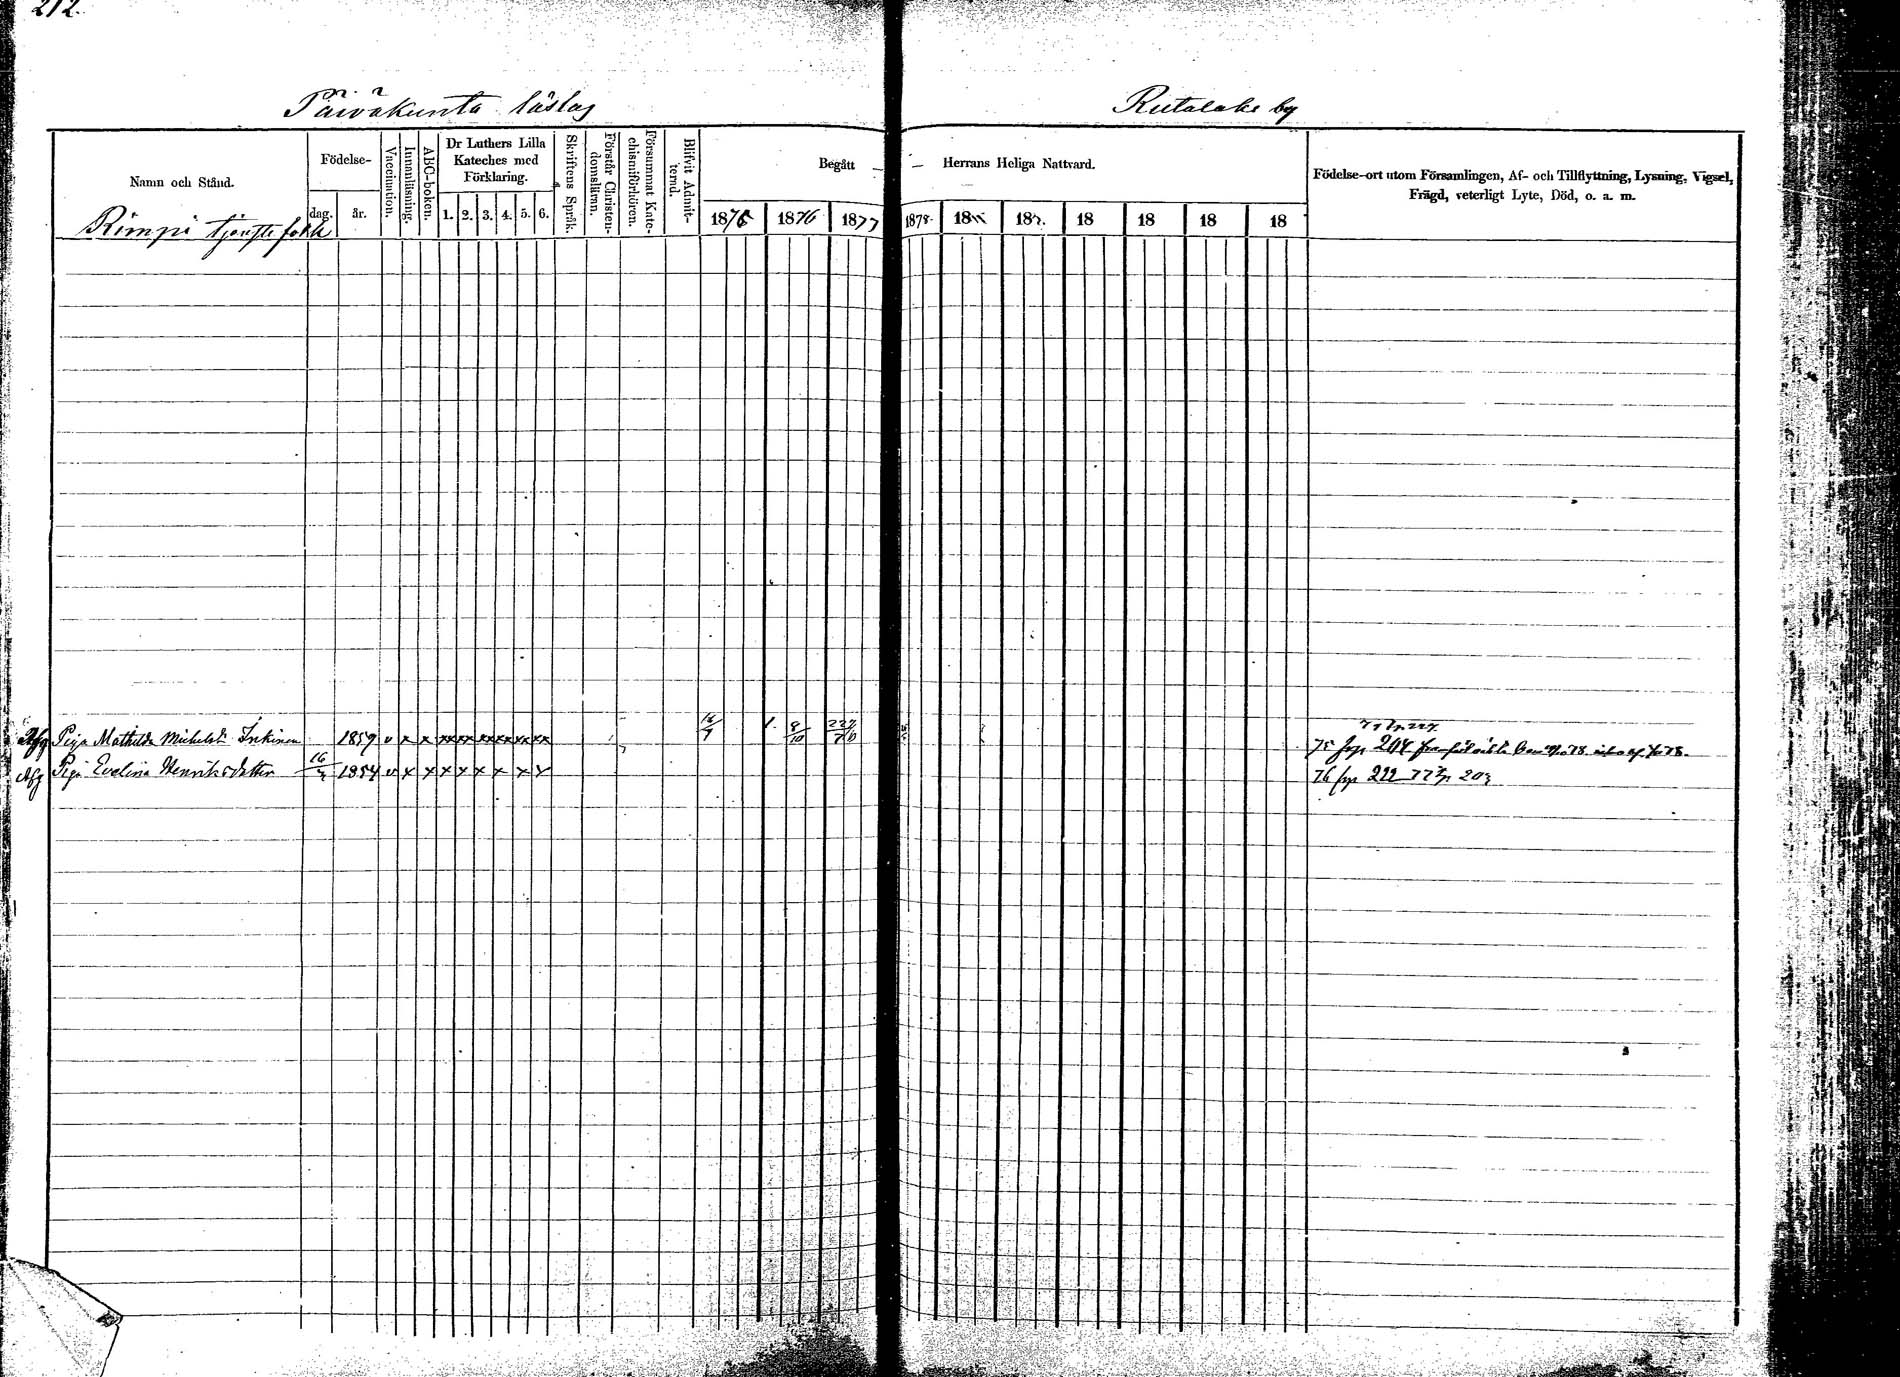 212.
Päiväkunta läslag
Rutalaks by
Namn och Stånd.
Födelse-
dag.
år.
Vaccination.
Innanläsning.
ABC-boken.
Dr Luthers Lilla Kateches med Förklaring.
1. 2. 3. 4. 5. 6.
Skriftens Språk.
Förstår Christendomsläran.
Försummat Katechismiförhören.
Blifvit Admitternd.
Begått — — Herrans Heliga Nattvard.
1875 1876 1877 1878 18 187. 18 18 18 18
Födelse-ort utom Församlingen, Af- och Tillflyttning, Lysning, Vigsel,
Frägd, veterligt Lyte, Död, o. a. m.
Rimpi tjenstefolk
Afg Piga Mathilda Michelsd. Inkinen 1859 v x x xx xx xx xx xx xx 8/10
75 frp 204
Afg Piga Evelina Henriksdotter 1854 v x x x x x x x x
76 frp 222 77 20